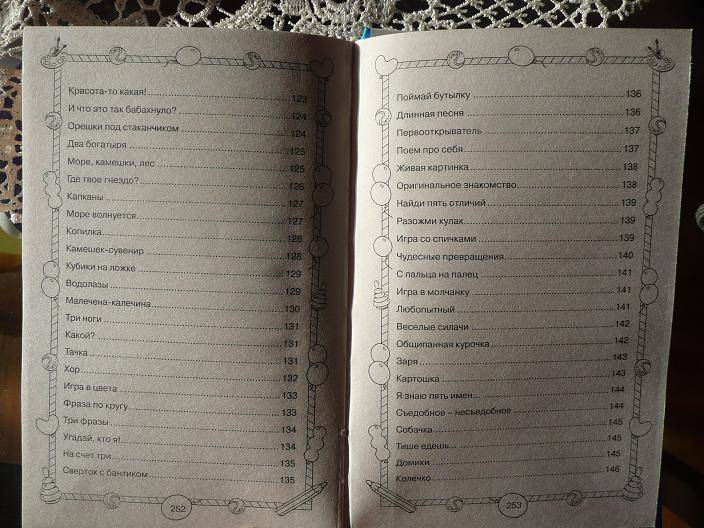 Красота-то какая! 123
И что это так бабахнуло? 124
Орешки под стаканчиком 124
Два богатыря 125
Море, камешки, лес 125
Где твое гнездо? 126
Капканы 127
Море волнуется 127
Копилка 128
Камешек-сувенир 128
Кубики на ложке 129
Водолазы 129
Малечена-калечина 130
Три ноги 131
Какой? 131
Тачка 131
Хор 132
Игра в цвета 133
Фраза по кругу 133
Три фразы 134
Угадай, кто я! 134
На счет три 135
Сверток с бантиком 135
252
Поймай бутылку 136
Длинная песня 136
Первооткрыватель 137
Поем про себя 137
Живая картинка 138
Оригинальное знакомство 138
Найди пять отличий 139
Разожми кулак 139
Игра со спичками 139
Чудесные превращения 140
С пальца на палец 141
Игра в молчанку 141
Любопытный 141
Веселые силачи 142
Общипанная курочка 142
Заря 143
Картошка 143
Я знаю пять имен... 144
Съедобное – несъедобное 144
Собачка 145
Тише едешь... 145
Домики 145
Колечко 146
253